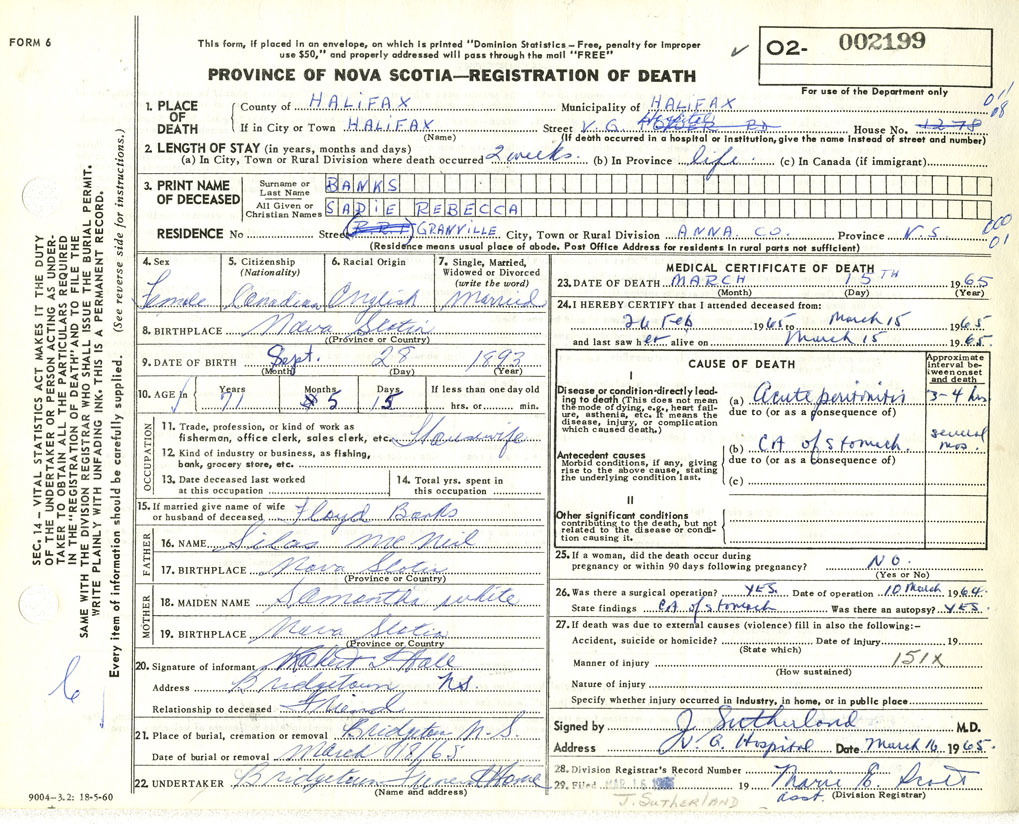 FORM 6
This form, if placed in an envelope, on which is printed "Dominion Statistics – Free, penalty for improper
use $50," and properly addressed will pass through the mail "FREE"
✓ O2- 002199
For use of the Department only
PROVINCE OF NOVA SCOTIA—REGISTRATION OF DEATH
011
08
1. PLACE OF DEATH
County of HALIFAX Municipality of HALIFAX
If in City or Town HALIFAX Street V. G. Hospital House No. 1278
(Name) (If death occurred in a hospital or institution, give the name instead of street and number)
2. LENGTH OF STAY (in years, months and days)
(a) In City, Town or Rural Division where death occurred 2 weeks. (b) In Province life. (c) In Canada (if immigrant)
3. PRINT NAME OF DECEASED
Surname or Last Name BANKS
All Given or Christian Names SADIE REBECCA
RESIDENCE No Street (RR1) GRANVILLE City, Town or Rural Division ANNA. CO. Province N.S.
(Residence means usual place of abode. Post Office Address for residents in rural parts not sufficient)
000
01
4. Sex Female
5. Citizenship (Nationality) Canadian
6. Racial Origin English
7. Single, Married, Widowed or Divorced (write the word) Married
8. BIRTHPLACE Nova Scotia
(Province or Country)
9. DATE OF BIRTH Sept. 28 1893
(Month) (Day) (Year)
10. AGE IN Years 71 Months 5 Days 15 If less than one day old
hrs. or min.
OCCUPATION
11. Trade, profession, or kind of work as
fisherman, office clerk, sales clerk, etc. Housewife
12. Kind of industry or business, as fishing,
bank, grocery store, etc.
13. Date deceased last worked
at this occupation
14. Total yrs. spent in
this occupation
15. If married give name of wife
or husband of deceased Floyd Banks
FATHER
16. NAME Silas McNeil
17. BIRTHPLACE Nova Scotia
(Province or Country)
MOTHER
18. MAIDEN NAME Samantha White
19. BIRTHPLACE Nova Scotia
(Province or Country)
20. Signature of informant Hall
Address Bridgetown NS.
Relationship to deceased Friend
21. Place of burial, cremation or removal Bridgetown N-S.
Date of burial or removal March 18/65
22. UNDERTAKER Bridgetown Funeral Home
(Name and address)
MEDICAL CERTIFICATE OF DEATH
23. DATE OF DEATH MARCH 15TH 1965
(Month) (Day) (Year)
24. I HEREBY CERTIFY that I attended deceased from:
26 Feb 1965 to March 15 1965
and last saw her alive on March 15 1965.
CAUSE OF DEATH
Approximate interval between onset and death
I
Disease or condition directly leading to death (This does not mean the mode of dying, e.g., heart failure, asthenia, etc. It means the disease, injury, or complication which caused death.)
(a) Acute peritonitis 3-4 hrs
due to (or as a consequence of)
Antecedent causes
Morbid conditions, if any, giving rise to the above cause, stating the underlying condition last.
(b) CA of stomach several mos.
due to (or as a consequence of)
(c)
II
Other significant conditions
contributing to the death, but not related to the disease or condition causing it.
25. If a woman, did the death occur during
pregnancy or within 90 days following pregnancy? NO.
(Yes or No)
26. Was there a surgical operation? YES. Date of operation 10 March 1964.
State findings CA of stomach Was there an autopsy? YES.
27. If death was due to external causes (violence) fill in also the following:-
Accident, suicide or homicide? Date of injury 19
(State which)
Manner of injury 151X
(How sustained)
Nature of injury
Specify whether injury occurred in industry, in home, or in public place
Signed by J Sutherland M.D.
Address V. G. Hospital Date March 16 1965.
28. Division Registrar's Record Number
29. Filed MAR 16 19 Marie E. Scott
J. SUTHERLAND asst. (Division Registrar)
SEC. 14 – VITAL STATISTICS ACT MAKES IT THE DUTY
OF THE UNDERTAKER OR PERSON ACTING AS UNDER-
TAKER TO OBTAIN ALL THE PARTICULARS REQUIRED
IN THE "REGISTRATION OF DEATH" AND TO FILE THE
SAME WITH THE DIVISION REGISTRAR WHO SHALL ISSUE THE BURIAL PERMIT.
WRITE PLAINLY WITH UNFADING INK. THIS IS A PERMANENT RECORD.
Every item of information should be carefully supplied. (See reverse side for instructions.)
9004–3.2: 18-5-60